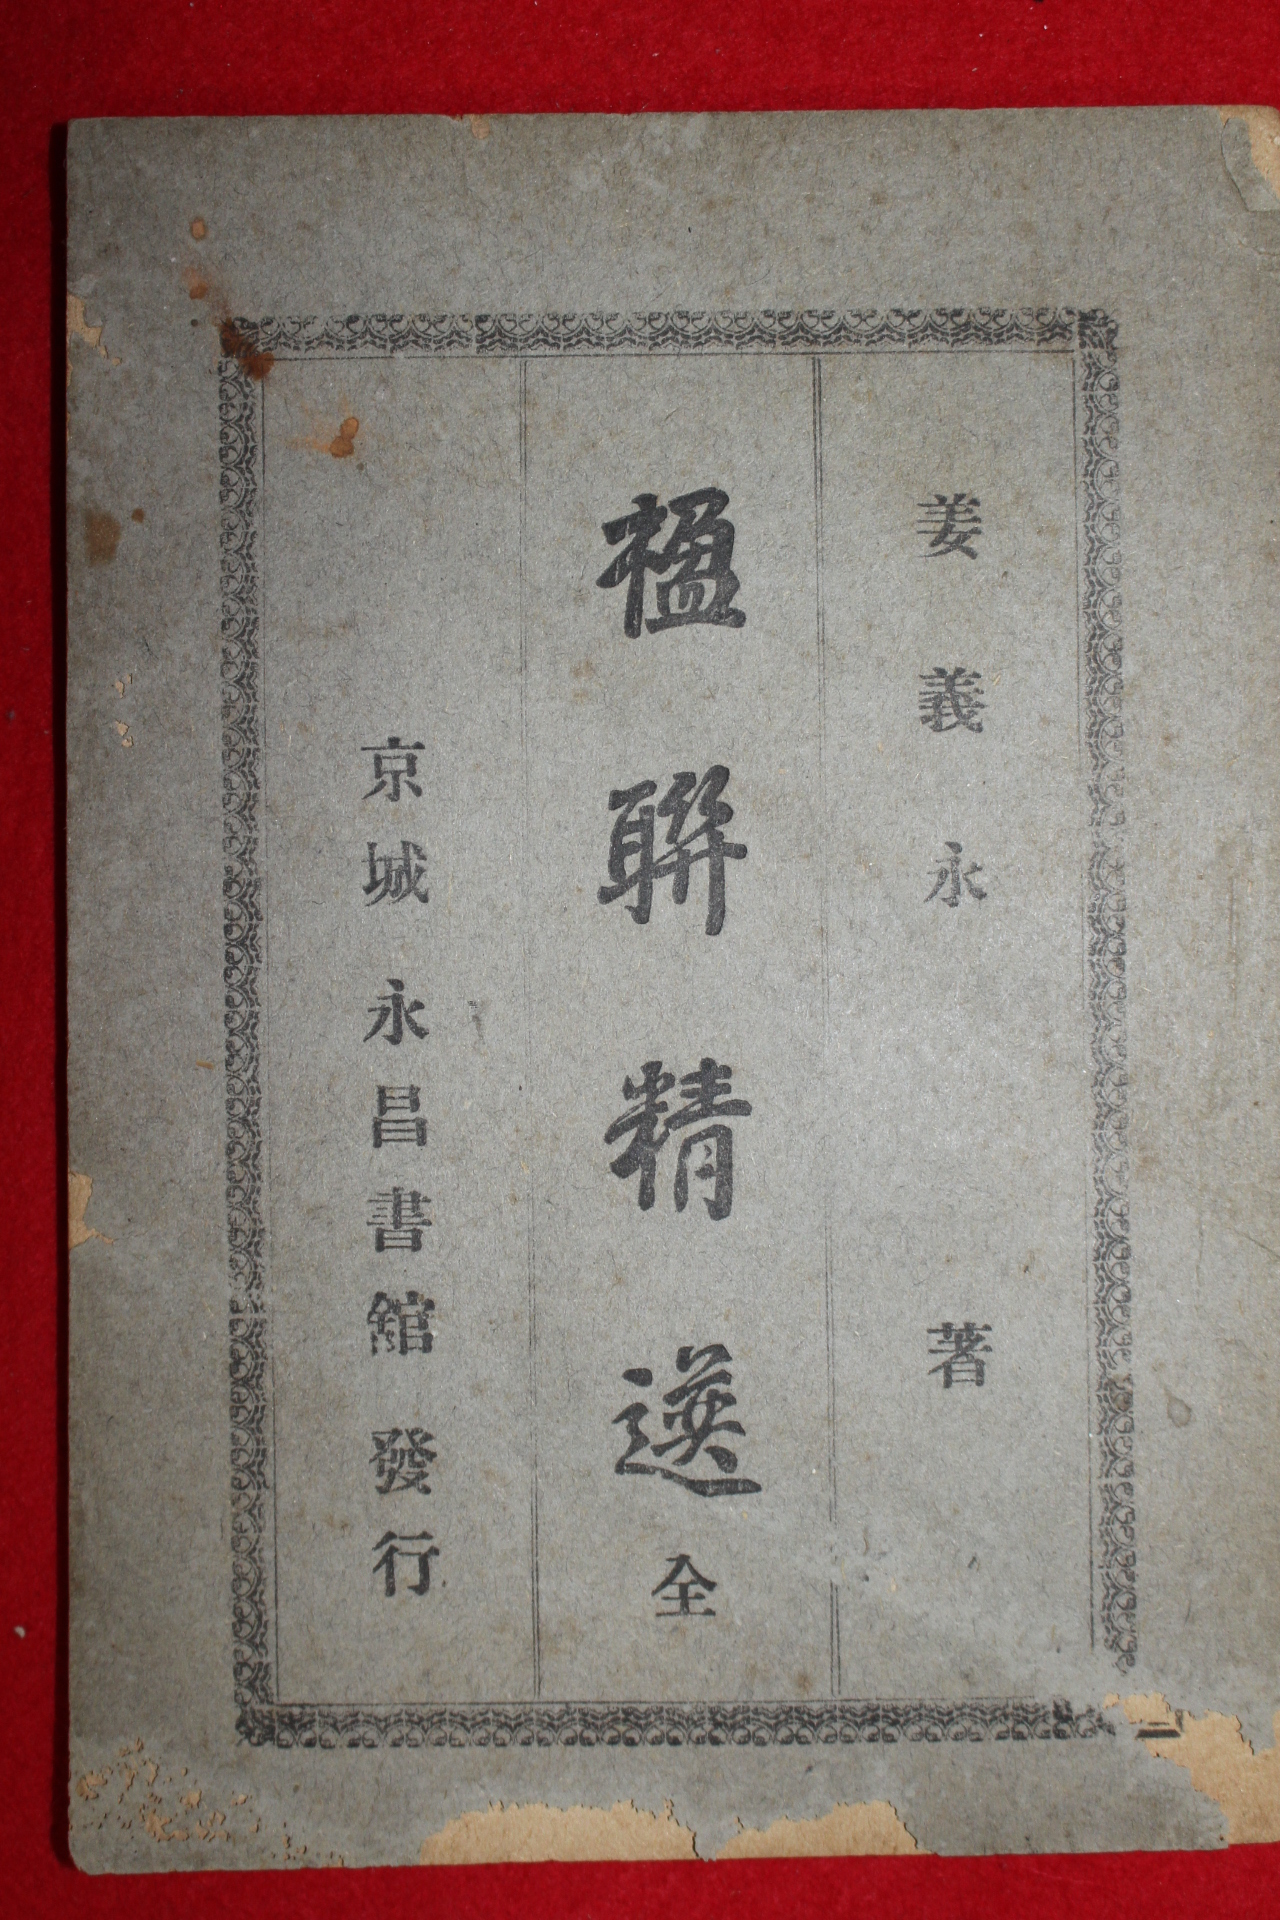 姜義永 著
楹聯精選 全
京城 永昌書館 發行